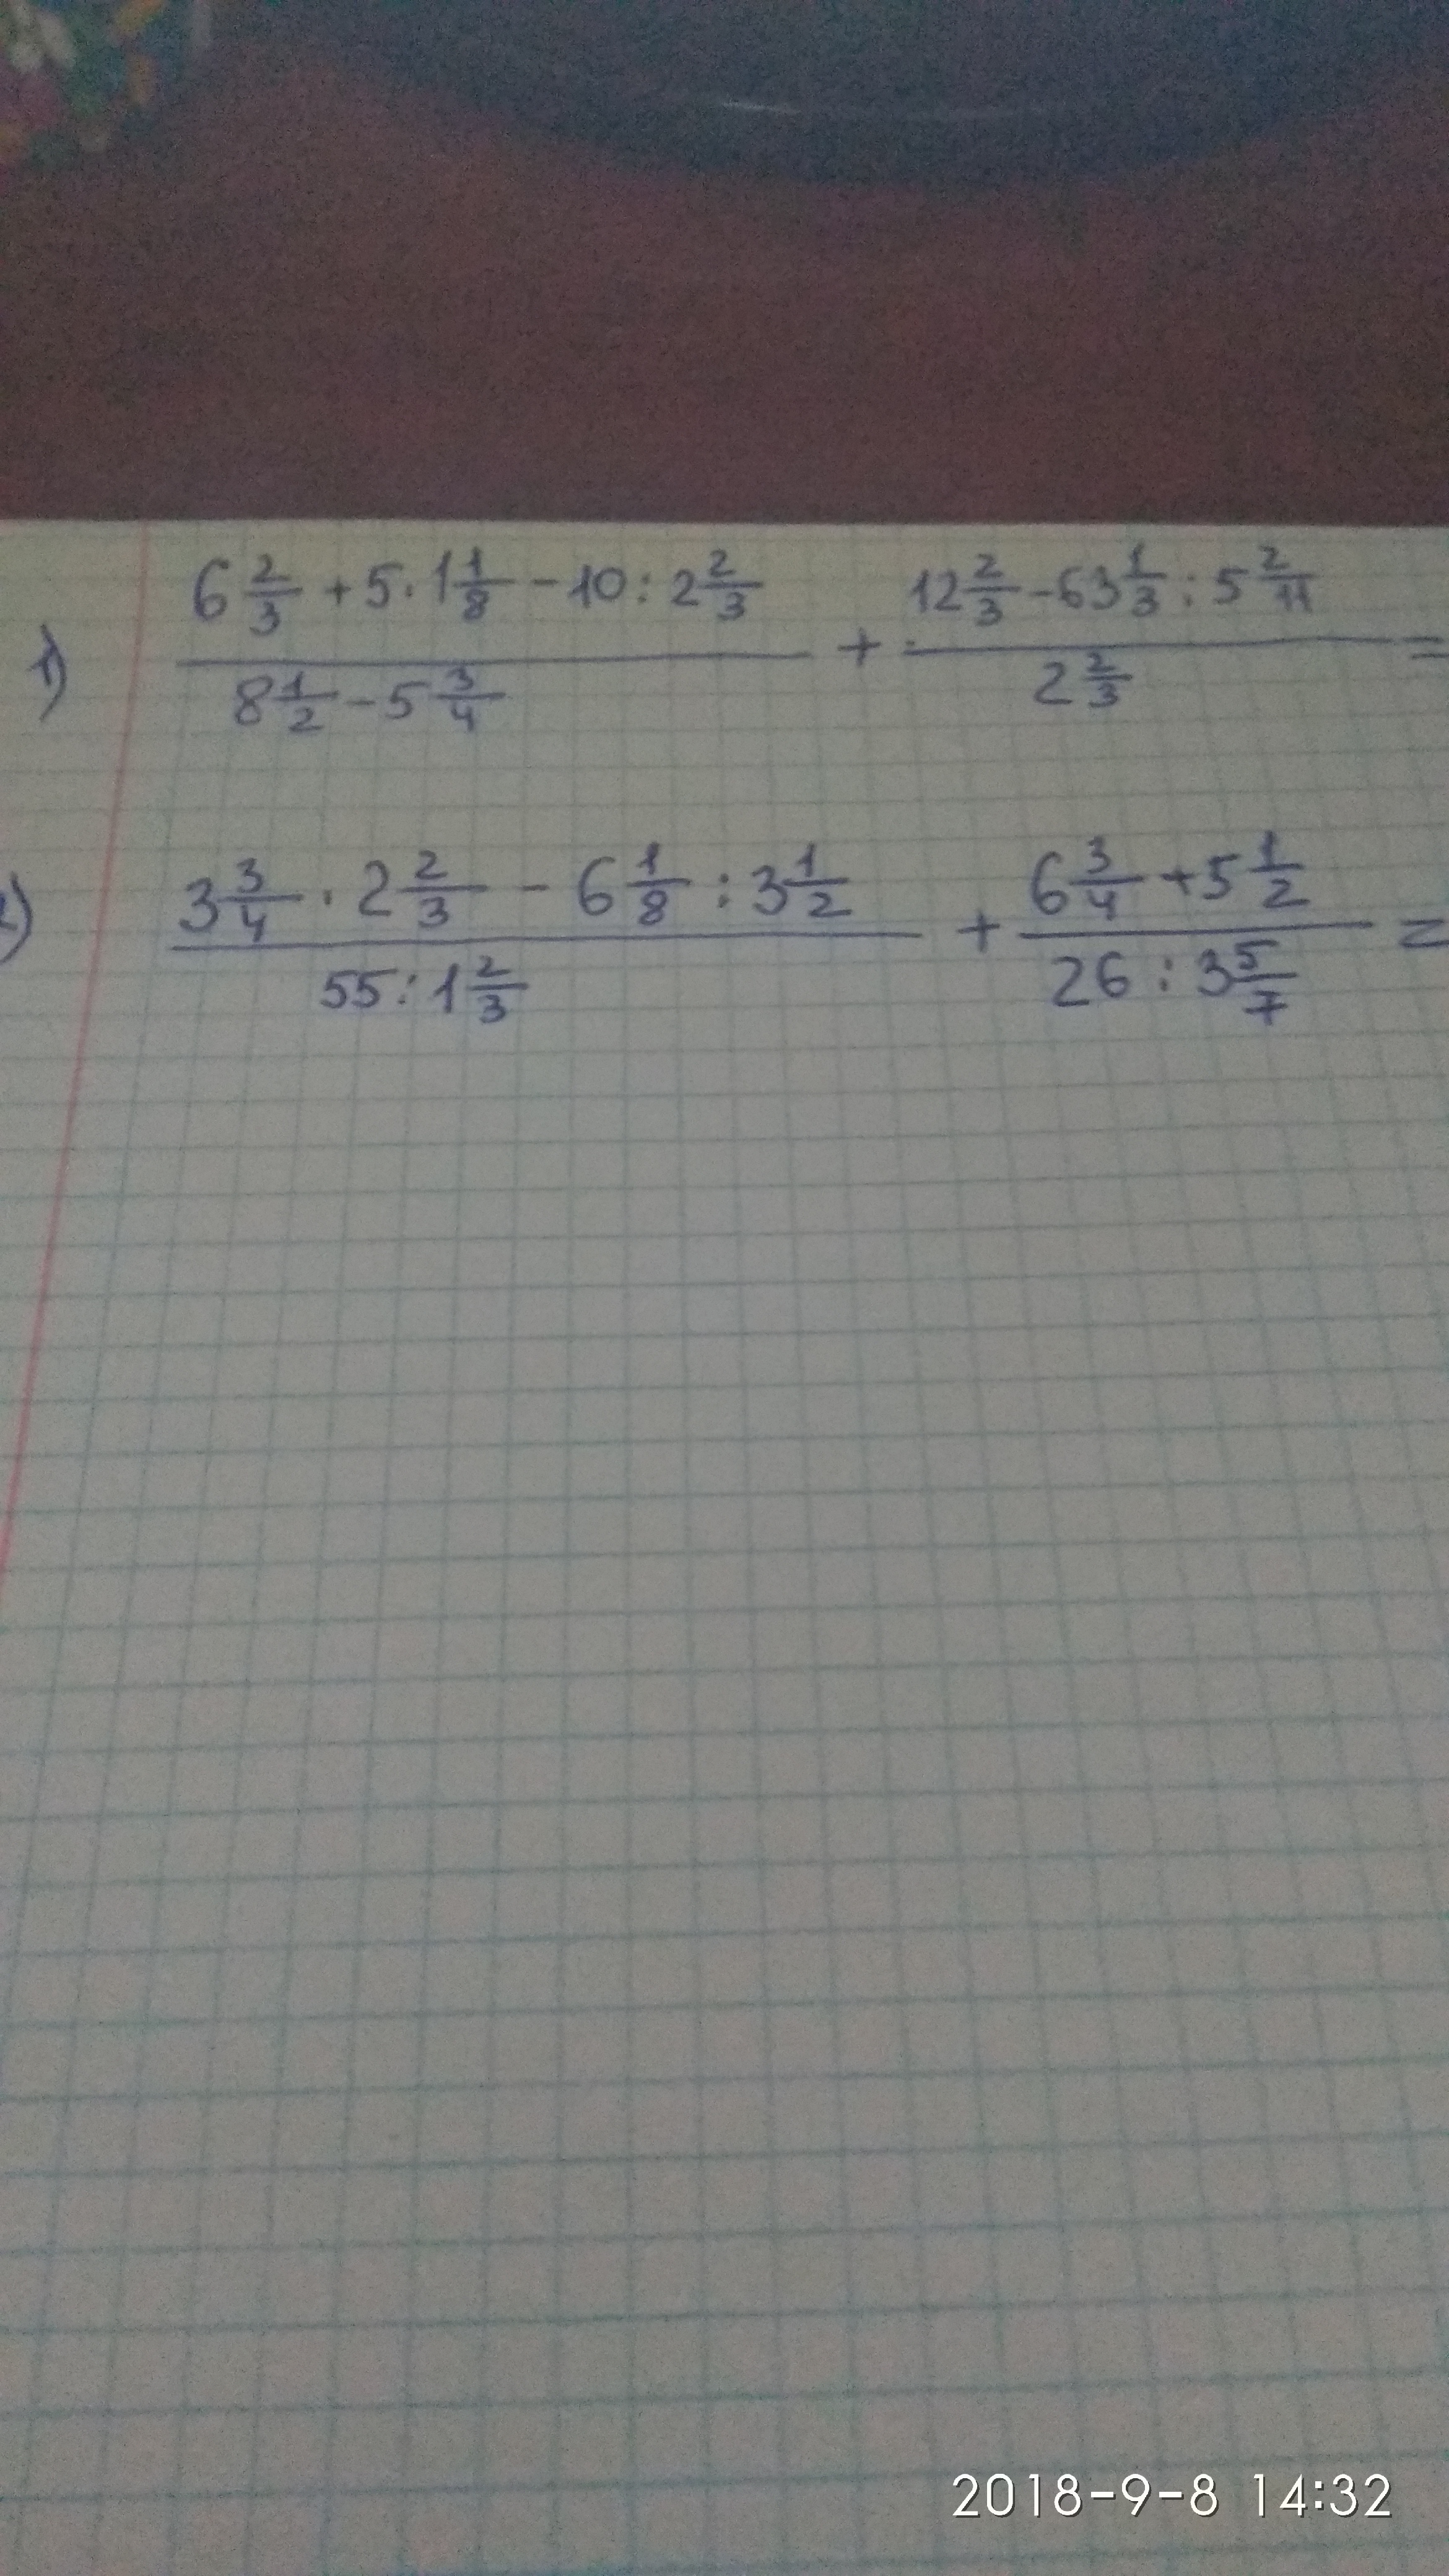 1) (6 2/3 + 5 · 1 1/8 − 10 : 2 2/3) / (8 1/2 − 5 3/4) + (12 2/3 − 63 1/3 : 5 2/11) / (2 2/3) =
) (3 3/4 · 2 2/3 − 6 1/8 : 3 1/2) / (55 : 1 2/3) + (6 3/4 + 5 1/2) / (26 : 3 5/7) =
2018-9-8 14:32